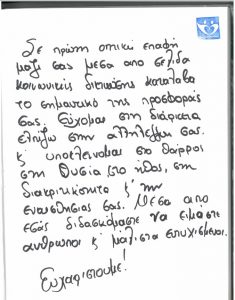 Σε πρώτη οπτική επαφή
μαζί σας μέσα από σελίδα
κοινωνικής δικτύωσης κατάλαβα
το σημαντικό της προσφοράς
σας. Εύχομαι στη διάρκεια
ελπίζω στην αλληλεγγύη σας.
κ' υποκλείνομαι στο θάρρος
στη θυσία στο ήθος, στη
διακριτικότητα κ' την
ευαισθησίας σας. Μέσα από
εσάς διδασκόμαστε να είμαστε
άνθρωποι κ' μάλιστα ευτυχισμένοι.
Ευχαριστούμε!